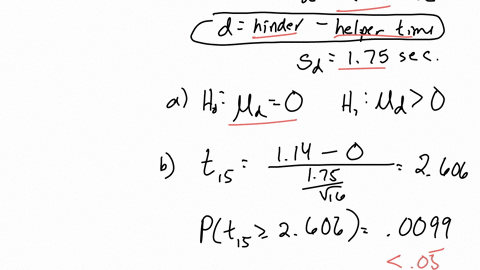 d = hinder - helper time
Sd = 1.75 sec.
a) H₀: μd = 0 H₁: μd > 0
b) t₁₅ = (1.14 - 0) / (1.75 / √16) = 2.606
P(t₁₅ ≥ 2.606) = .0099
< .05